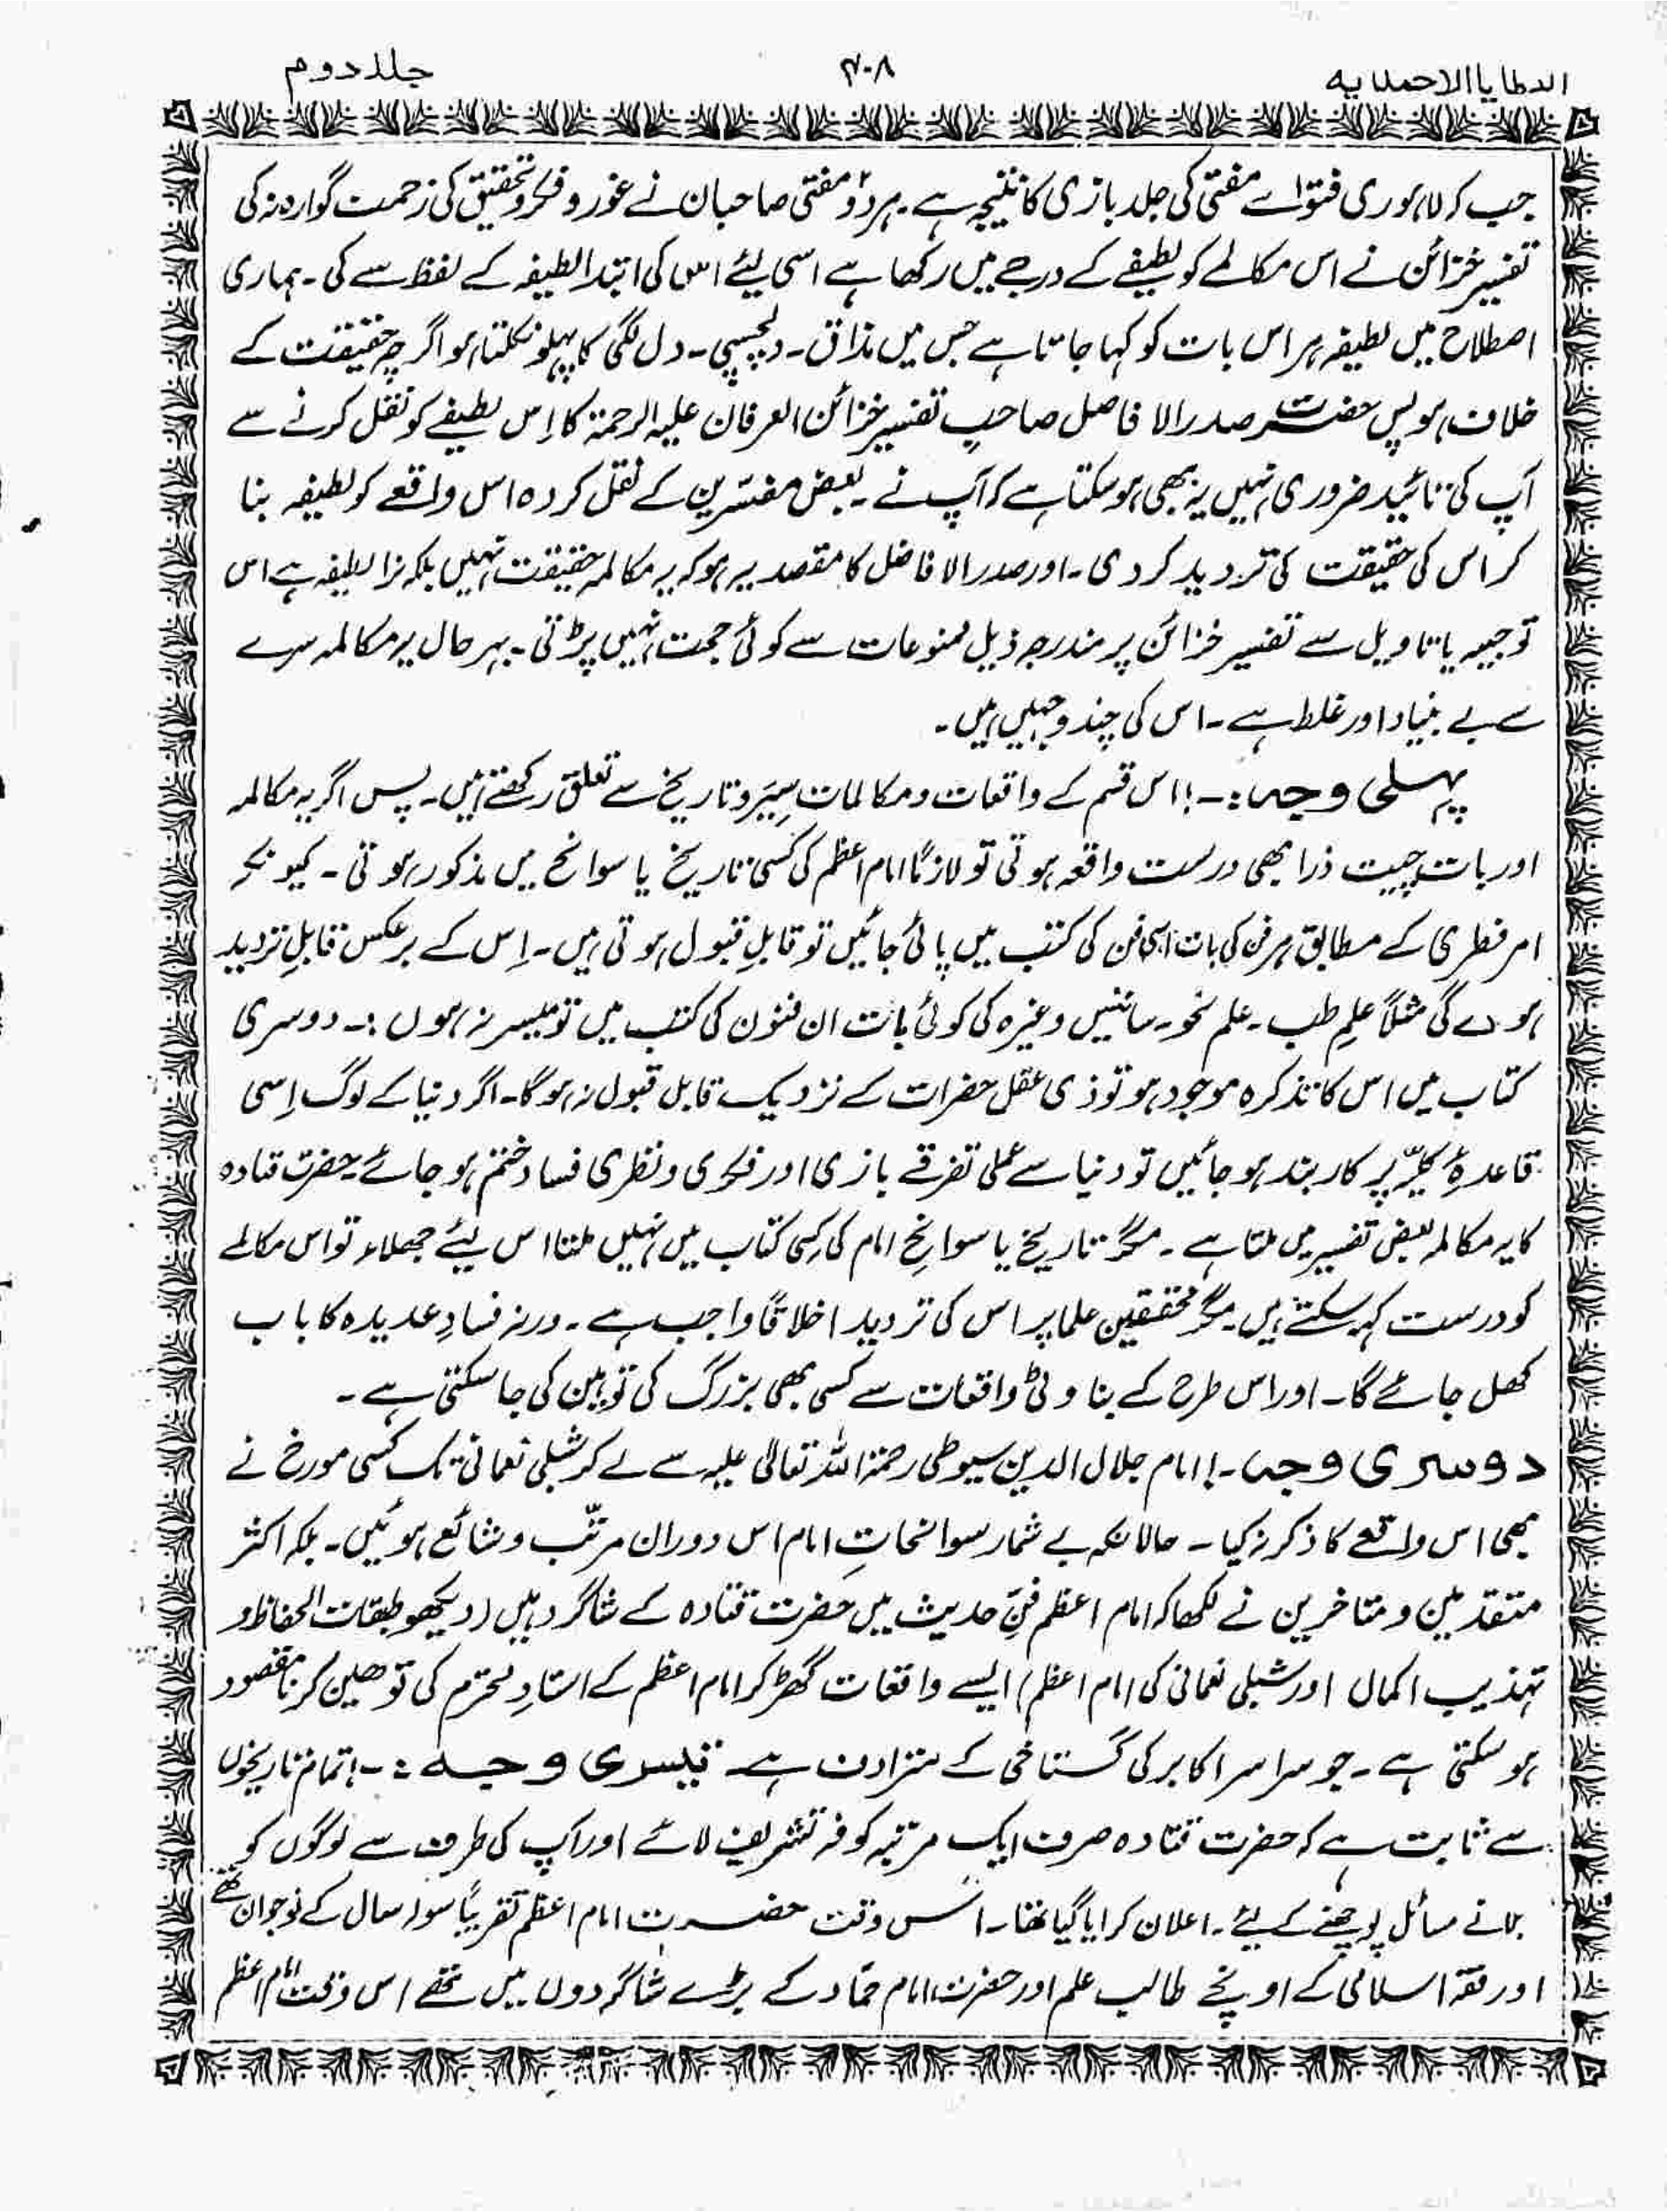 العطایا الاحمدیه ۴۰۸ جلد دوم
جب کہ لاہوری فتوٰے مفتی کی جلد بازی کا نتیجہ ہے۔ ہر دو مفتی صاحبان نے غور و فکر و تحقیق کی زحمت گوارہ نہ کی
تفسیر خزائن نے اس مکالمے کو لطیفے کے درجے میں رکھا ہے اسی لیئے اس کی ابتدا لطیفہ کے لفظ سے کی۔ ہماری
اصطلاح میں لطیفہ ہر اس بات کو کہا جاتا ہے جس میں مذاق۔ دلچسپی۔ دل لگی کا پہلو نکلتا ہو اگر چہ حقیقت کے
خلاف ہو پس حضرت صدر الا فاضل صاحبِ تفسیر خزائن العرفان علیہ الرحمۃ کا اِس لطیفے کو نقل کرنے سے
آپ کی تائید ضروری نہیں یہ بھی ہو سکتا ہے کہ آپ نے بعض مفسّرین کے نقل کردہ اس واقعے کو لطیفہ بنا
کر اس کی حقیقت کی تردید کر دی۔ اور صدر الا فاضل کا مقصد یہ ہو کہ یہ مکالمہ حقیقت نہیں بلکہ نرا لطیفہ ہے اس
توجیہہ یا تاویل سے تفسیر خزائن پر مندرجہ ذیل ممنوعات سے کوئی حجت نہیں پڑتی۔ بہر حال یہ مکالمہ سرے
سے بے بنیاد اور غلط ہے۔ اس کی چند وجہیں ہیں۔
پہلی وجہ:۔! اس قسم کے واقعات و مکالمات سِیَر و تاریخ سے تعلق رکھتے ہیں۔ پس اگر یہ مکالمہ
اور بات چیت ذرا بھی درست واقعہ ہوتی تو لازمًا امام اعظم کی کسی تاریخ یا سوانح میں مذکور ہوتی۔ کیونکہ
امر فطری کے مطابق ہر فن کی بات اسی فن کی کتب میں پائی جائیں تو قابلِ قبول ہوتی ہیں۔ اِس کے برعکس قابلِ تردید
ہووے گی مثلًا علمِ طب۔ علم نحو۔ سائنس وغیرہ کی کوئی بات ان فنون کی کتب میں تو میسر نہ ہوں:۔ دوسری
کتاب میں اس کا تذکرہ موجود ہو تو ذی عقل حضرات کے نزدیک قابل قبول نہ ہو گا۔ اگر دنیا کے لوگ اِسی
قاعدہِ کلیّہ پر کاربند ہو جائیں تو دنیا سے عملی تفرقے بازی اور فکری و نظری فساد ختم ہو جائے۔ حضرت قتادہ
کا یہ مکالمہ بعض تفسیر میں ملتا ہے۔ مگر تاریخ یا سوانحِ امام کی کسی کتاب میں نہیں ملتا اس لیئے جھلاء تو اس مکالمے
کو درست کہہ سکتے ہیں۔ مگر محققین علما پر اس کی تردید اخلاقًا واجب ہے۔ ورنہ فسادِ عدیدہ کا باب
کھل جائے گا۔ اور اس طرح کے بناوٹی واقعات سے کسی بھی بزرگ کی توہین کی جا سکتی ہے۔
دوسری وجہ۔! امام جلال الدین سیوطی رحمۃ اللہ تعالٰی علیہ سے لے کر شبلی نعمانی تک کسی مورخ نے
بھی اس واقعے کا ذکر نہ کیا۔ حالانکہ بے شمار سوانحاتِ امام اس دوران مرتّب و شائع ہوئیں۔ بلکہ اکثر
متقدمین و متاخرین نے لکھا کہ امام اعظم فنِّ حدیث میں حضرت قتادہ کے شاگرد ہیں (دیکھو طبقات الحفاظ و
تہذیب اکمال اور شبلی نعمانی کی امام اعظم) ایسے واقعات گھڑ کر امام اعظم کے استادِ محترم کی توھین کرنا مقصود
ہو سکتی ہے۔ جو سراسر اکابر کی گستاخی کے مترادف ہے۔ تیسری وجہ:۔! تمام تاریخوں
سے ثابت ہے کہ حضرت قتادہ صرف ایک مرتبہ کوفہ تشریف لائے اور آپ کی طرف سے لوگوں کو
بلانے مسائل پوچھنے کے لیئے۔ اعلان کرایا گیا تھا۔ اس وقت حضرت امام اعظم تقریبًا سولہ سال کے نوجوان تھے
اور فقہ اسلامی کے اونچے طالب علم اور حضرت امام حمّاد کے بڑے شاگردوں میں تھے اس وقت امام اعظم